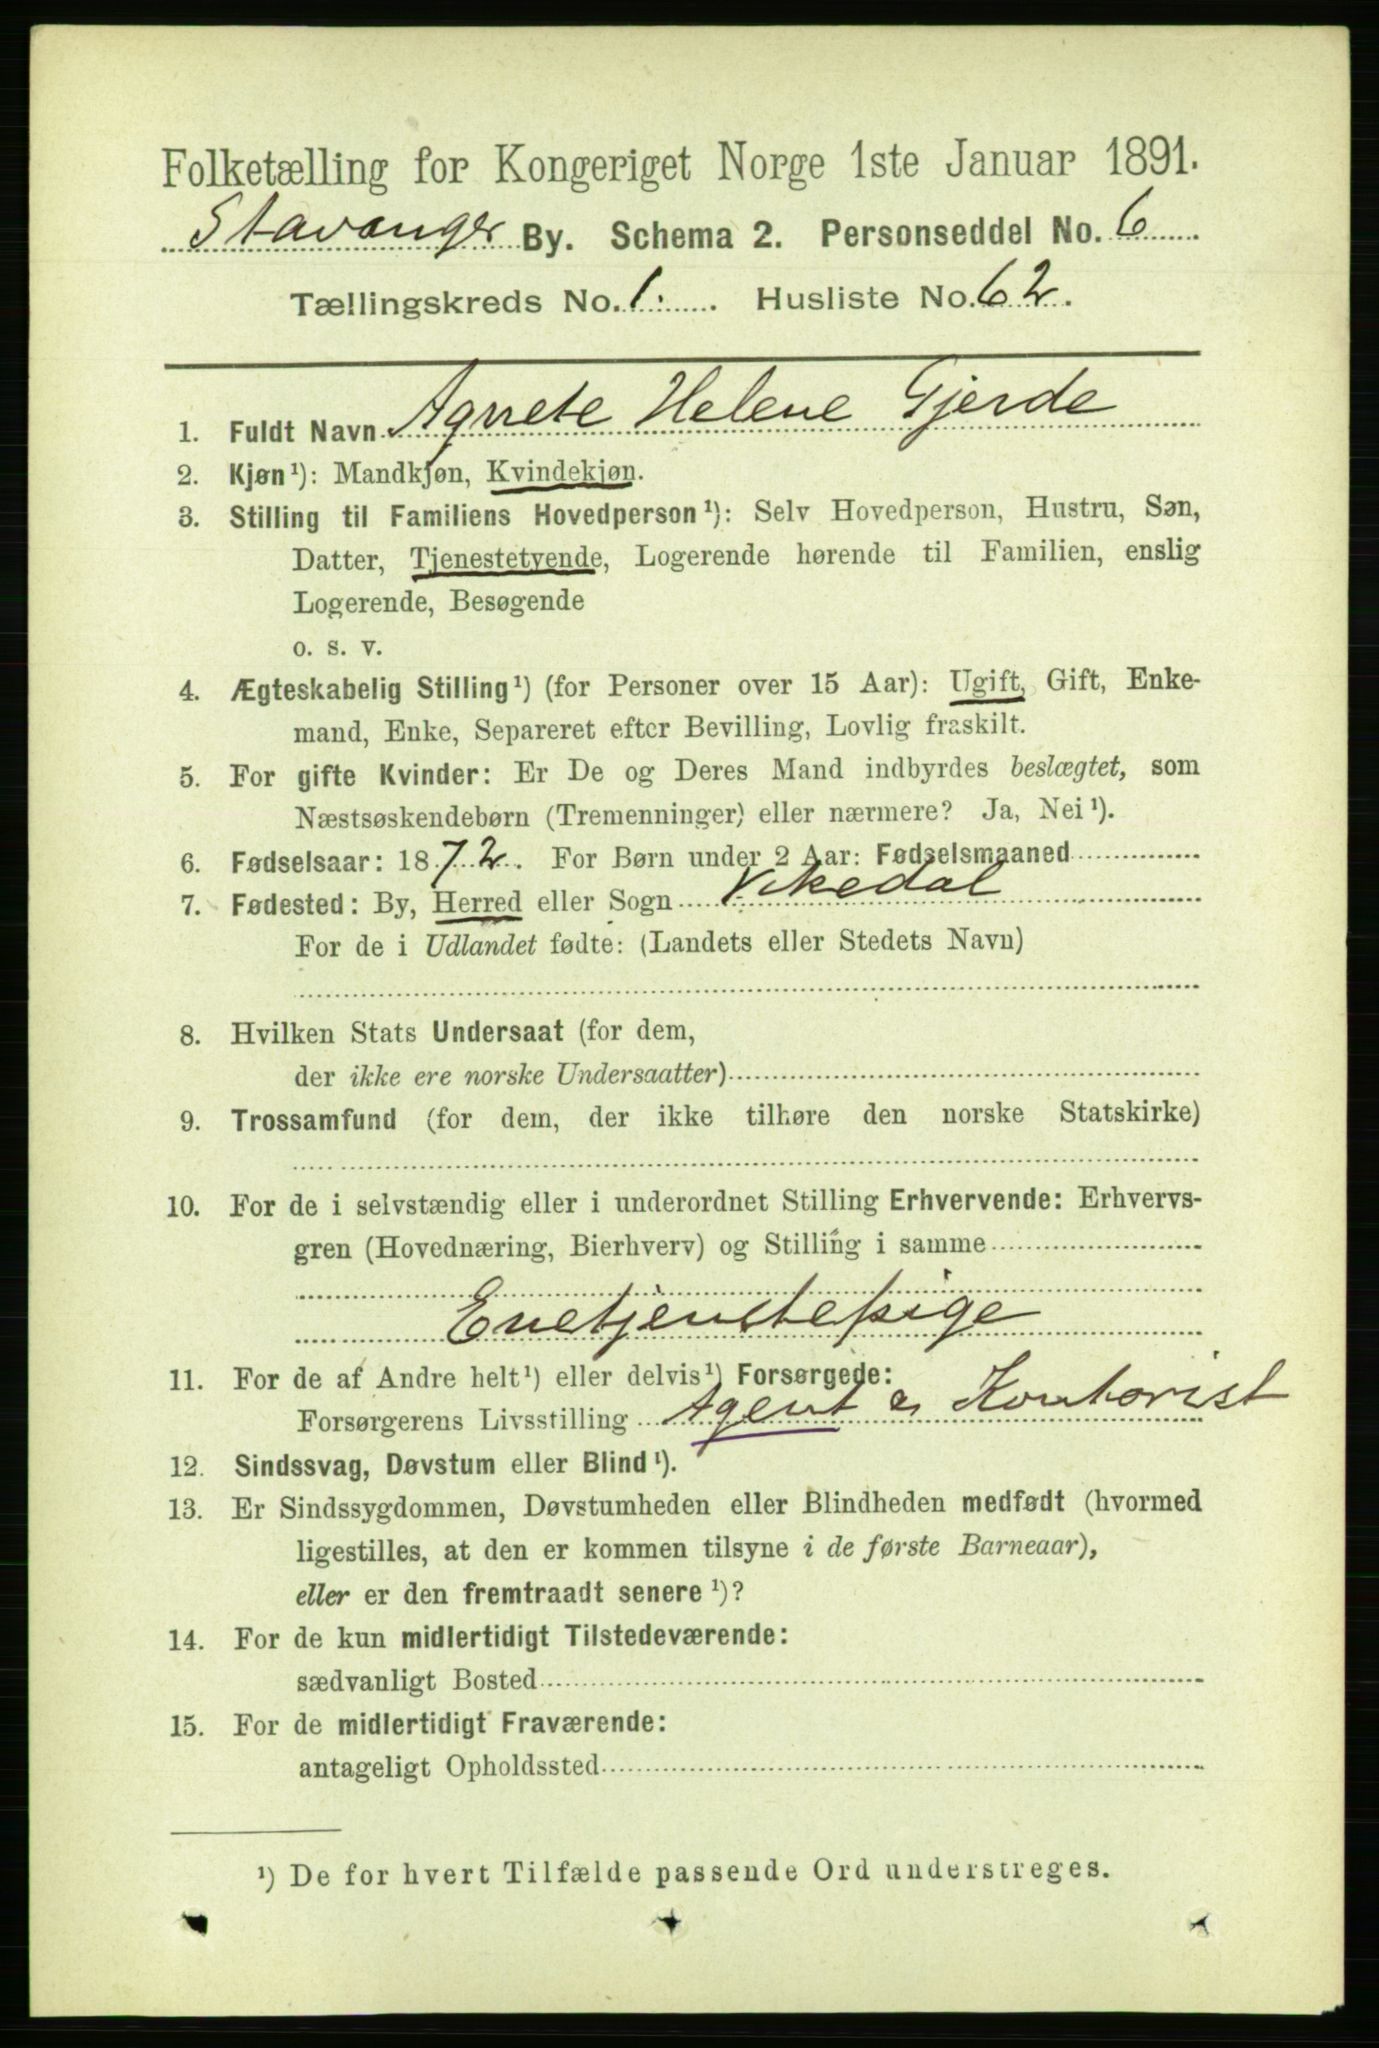 Folketælling for Kongeriget Norge 1ste Januar 1891.
Stavanger By. Schema 2. Personseddel No. 6
Tællingskreds No. 1. Husliste No. 62.
1. Fuldt Navn Agnete Helene Gjerde
2. Kjøn ¹): Mandkjøn, Kvindekjøn.
3. Stilling til Familiens Hovedperson ¹): Selv Hovedperson, Hustru, Søn,
Datter, Tjenestetyende, Logerende hørende til Familien, enslig
Logerende, Besøgende
o. s. v.
4. Ægteskabelig Stilling ¹) (for Personer over 15 Aar): Ugift, Gift, Enke-
mand, Enke, Separeret efter Bevilling, Lovlig fraskilt.
5. For gifte Kvinder: Er De og Deres Mand indbyrdes beslægtet, som
Næstsøskendebørn (Tremenninger) eller nærmere? Ja, Nei ¹).
6. Fødselsaar: 1872. For Børn under 2 Aar: Fødselsmaaned
7. Fødested: By, Herred eller Sogn Vikedal
For de i Udlandet fødte: (Landets eller Stedets Navn)
8. Hvilken Stats Undersaat (for dem,
der ikke ere norske Undersaatter)
9. Trossamfund (for dem, der ikke tilhøre den norske Statskirke)
10. For de i selvstændig eller i underordnet Stilling Erhvervende: Erhvervs-
gren (Hovednæring, Bierhverv) og Stilling i samme
Enetjenstepige
11. For de af Andre helt ¹) eller delvis ¹) Forsørgede:
Forsørgerens Livsstilling Agent & Kontorist
12. Sindssvag, Døvstum eller Blind ¹).
13. Er Sindssygdommen, Døvstumheden eller Blindheden medfødt (hvormed
ligestilles, at den er kommen tilsyne i de første Barneaar),
eller er den fremtraadt senere ¹)?
14. For de kun midlertidigt Tilstedeværende:
sædvanligt Bosted
15. For de midlertidigt Fraværende:
antageligt Opholdssted
¹) De for hvert Tilfælde passende Ord understreges.